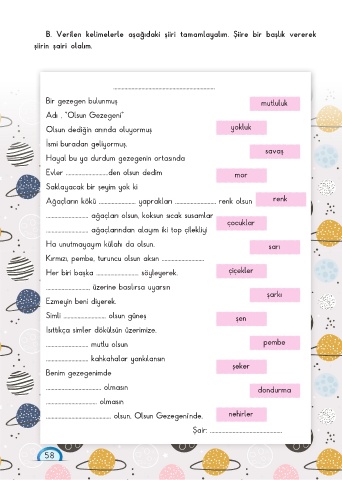 B. Verilen kelimelerle aşağıdaki şiiri tamamlayalım. Şiire bir başlık vererek
şiirin şairi olalım.
..................................................
Bir gezegen bulunmuş
Adı , "Olsun Gezegeni"
Olsun dediğin anında oluyormuş
İsmi buradan geliyormuş.
Hayal bu ya durdum gezegenin ortasında
Evler ......................den olsun dedim
Saklayacak bir şeyim yok ki
Ağaçların kökü ................... yaprakları ..................... renk olsun
..................... ağaçları olsun, koksun sıcak susamlar
..................... ağaçlarından alayım iki top çilekliyi
Ha unutmayayım külahı da olsun.
Kırmızı, pembe, turuncu olsun aksın .....................
Her biri başka ..................... söyleyerek.
...................... üzerine basılırsa uyarsın
Ezmeyin beni diyerek.
Simli ..................... olsun güneş
Isıttıkça simler dökülsün üzerimize.
..................... mutlu olsun
..................... kahkahalar yankılansın
Benim gezegenimde
........................... olmasın
......................... olmasın
................................ olsun, Olsun Gezegeni'nde.
Şair: ....................................
mutluluk
yokluk
savaş
mor
renk
çocuklar
sarı
çiçekler
şarkı
şen
pembe
şeker
dondurma
nehirler
58